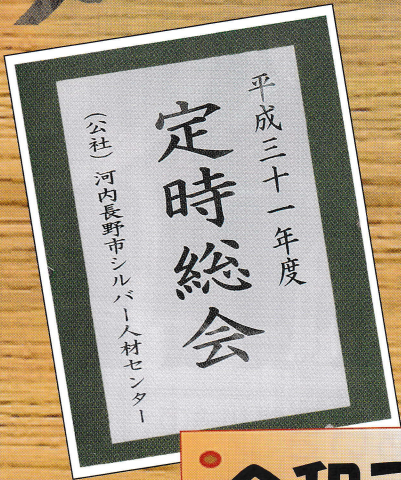 平成三十一年度
定時総会
（公社）河内長野市シルバー人材センター
令和